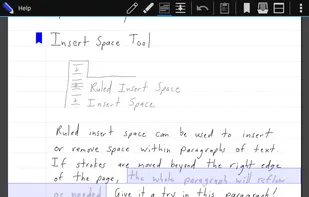 Help
Insert Space Tool
Ruled Insert Space
Insert Space
Ruled insert space can be used to insert
or remove space within paragraphs of text.
If strokes are moved beyond the right edge
of the page, the whole paragraph will reflow
as needed. Give it a try in this paragraph!